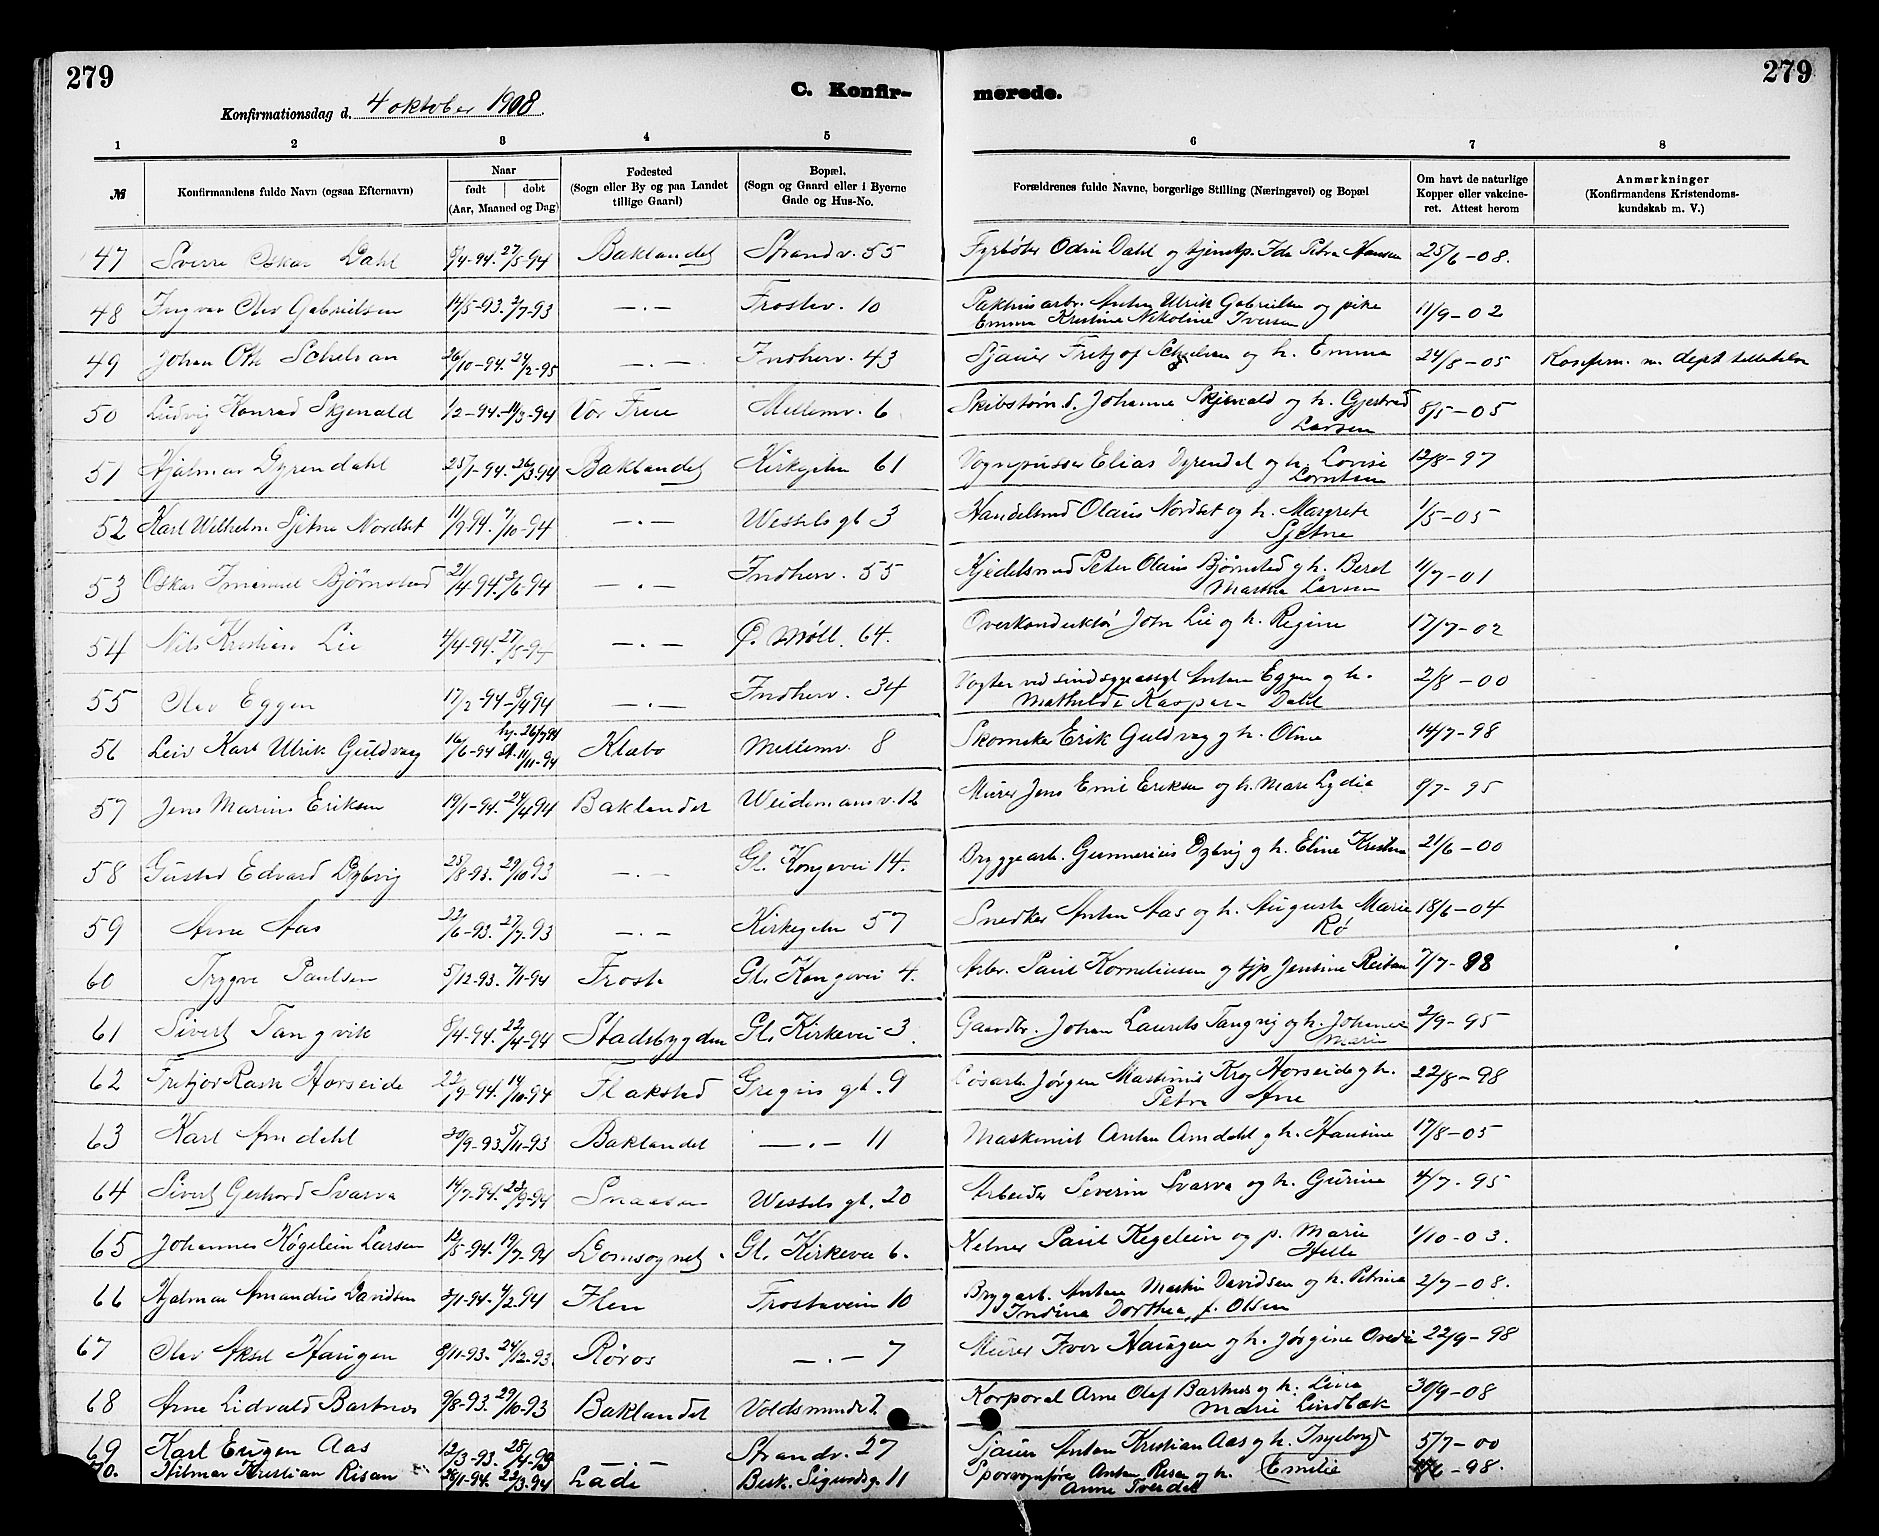 279
C. Konfir-
merede.
279
Konfirmationsdag d. 4 oktober 1908.
1 2 3 4 5 6 7 8
№
Konfirmandens fulde Navn (ogsaa Efternavn)
Naar
født dobt
(Aar, Maaned og Dag)
Fødested
(Sogn eller By og paa Landet
tillige Gaard)
Bopæl.
(Sogn og Gaard eller i Byerne
Gade og Hus-No.
Forældrenes fulde Navne, borgerlige Stilling (Næringsvei) og Bopæl
Om havt de naturlige
Kopper eller vakcine-
ret. Attest herom
Anmærkninger
(Konfirmandens Kristendoms-
kundskab m. V.)
47 Sverre Oskar Dahl 8/4-94. 27/5-94 Baklandet Strandv. 55 Fyrbøter Odin Dahl og tjenstp. Ida Petra Hansen 25/6-08.
48 Ingvar Olav Gabrielsen 14/5-93. 2/7-93 —.— Frostav. 10 Pakhusarb. Anton Ulrik Gabrielsen og pike
Emma Kristine Nikoline Iversen 11/9-02
49 Johan Otto 26/10-94. 24/2-95 —.— Indherv. 43 Sjauer Fritjof og h. Emma 24/8-05 Konfirm. m.
50 Ludvig Konrad Skjevald 1/2-94. 11/3-94 Vor Frue Mellemv. 6 Skibstøm. Johannes og h. Gjertrud
Larsen 8/5-05
51 Hjalmar Dyrendahl 25/1-94. 26/3-94 Baklandet Kirkegtn 61 Vognpusser Elias Dyrendal og h. Lovise
Lorntsen 12/8-97
52 Karl Wilhelm Sjetne Nordset 11/9 94. 7/10-94 —.— Wessels gt 3 Handelsmd Olaus Nordset og h. Margrete
Sjetne 1/5-05
53 Oskar Imanuel Bjørnstad 21/4-94. 3/6-94 —.— Indherv. 55 Kjedelsmed Peter Olaus Bjørnstad og h. Beret
Martha Larsen 11/7-01
54 Nils Kristian Lie 4/4-94. 27/5-94 —.— Ø. Møll. 64. Overkonduktør John Lie og h. Regine 17/7-02
55 Olav Eggen 17/2-94. 8/4 94 —.— Indherv. 34 Vogter ved sindsygeasyl Anton Eggen og h.
Mathilde Kaspara Dahl 2/8-00
56 Leiv Karl Ulrik Guldvaag 16/6-94 hj. 26/7 94
st. 11/11-94 Klæbo Mellemv. 8 Skomaker Erik Guldvaag og h. Oline 14/7-98
57 Jens Marius Eriksen 19/1-94. 24/4 94 Baklandet Weidemansv. 12 Murer Jens Emil Eriksen og h. Mare Lydia 8/7-95
58 Gustav Edvard Dybvig 25/8-93. 29/10 93 —.— Gl. Kongevei 14. Bryggearb. Gunnerius Dybvig og h. Eline Kristine 21/6-00
59 Arne Aas 22/6-93. 27/7-93 —.— Kirkegtn 57 Snedker Anton Aas og h. Augusta Marie
Rø 18/6-04
60 Trygve Paulsen 5/12-93. 7/1-94 Frosta Gl. Kongevei 4. Arbr. Paul Korneliusen og tjp Jensine Reitan 7/7-98
61 Sivert Tangvik 8/4-94. 22/4-94 Stadsbygden Gl. Kirkevei 3. Gaardbr. Johan Laurits Tangvig og h. Johanna
Marie 2/9-95
62 Fritjof Rask Horseide 22/9-94. 14/10-94 Flakstad Gregus gt. 9 Løsarb. Jørgen Martinus Krog Horseide og h.
Petra Arne 22/8-98
63 Karl Amdahl 30/9-93. 5/11-93 Baklandet —.— 11 Maskinist Anton Amdahl og h. Hansine 17/8-05
64 Sivert Gerhard Svarva 14/7-94. 23/9-94 Snaasen Wessels gt. 20 Arbeider Severin Svarva og h. Gurine 4/7-95
65 Johannes Køgelein Larsen 12/5-94. 19/7-94 Domsognet. Gl. Kirkevei 6. Kelner Paul Kegelein og p. Marie
Helle 1/10-03.
66 Hjalmar Amandus Davidsen 3/1-94. 4/2 94 Ilen Frostaveien 10 Brygarb. Anton Martin Davidsen og h. Petrina
Indina Dorthea, f. Olsen 2/7-08.
67 Olav Aksel Haugen 8/11-93. 24/12-93. Røros —.— 7 Murer Ivar Haugen og h. Jørgine Ovedie 22/9-98
68 Arne Lidvald Bartnes 9/8-93. 29/10-93 Baklandet Voldsmindet 2 Korporal Arne Olaf Bartnes og h. Lina
Marie Lindbæk 30/9-08
69 Karl Eugen Aas 12/3-93. 28/4-93 —.— Strandv. 27 Sjauer Anton Kristian Aas og h. Ingeborg
Emilie 5/7-00
70. Hilmar Kristian Risan 28/1-94. 23/3-94 Lade Bisk. Sigurdsg. 11 Sporvognfører Anton Risan og h.
Anne 6-98.